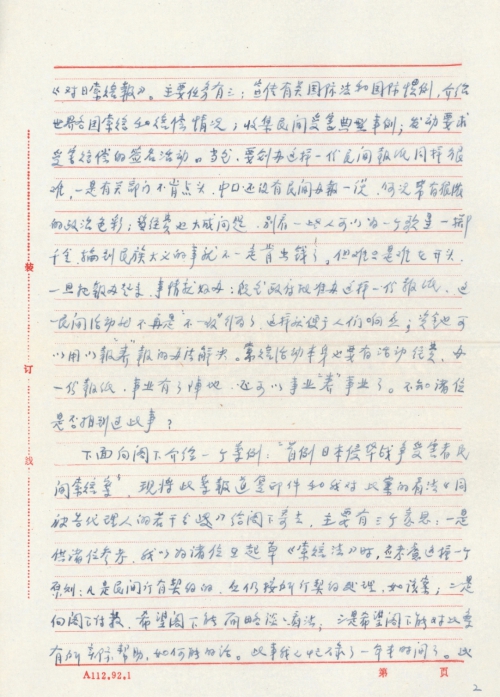 《对日索赔报》。主要任务有三：宣传有关国际法和国际惯例，介绍
世界各国索赔和赔偿情况；收集民间受害典型事例；发动要求
受害赔偿的签名活动。当然，要创办这样一份民间报纸同样很
难，一是有关部门不肯点头，中国还没有民间办报一说，何况带有很浓
的政治色彩；二是经费也大成问题，别看一些人可以为一个歌星一掷
千金，轮到民族大义的事就不一定肯出钱了。但难只是难在开头，
一旦把报办起来，事情就好办：政府批准办这样一份报纸，这
民间活动也不再是“不一致”行为了，这样就便于人们响应；资金也可
以用以报“养”报的办法解决。索赔活动本身也要有活动经费，办
一份报纸，事业有了阵地，还可以事业“养”事业了。不知诸位
是否想到过此事？
下面向阁下介绍一个案例：“首例日本侵华战争受害者民
间索赔案”，现将此案报道复印件和我对此案的看法《同
被告代理人的若干分歧》给阁下寄去，主要有三个意思：一是
供诸位参考，我以为诸位在起草《索赔法》时，应来鉴这样一个
原则：凡是民间订有契约的，应仍按所订契约处理，如该案；二是
向阁下请教，希望阁下能简略谈谈看法；三是希望阁下能对此案
有所实际帮助，如何能的话。此事我已忙了一年半时间了。此
装
订
线
A112.92.1
第 页
2